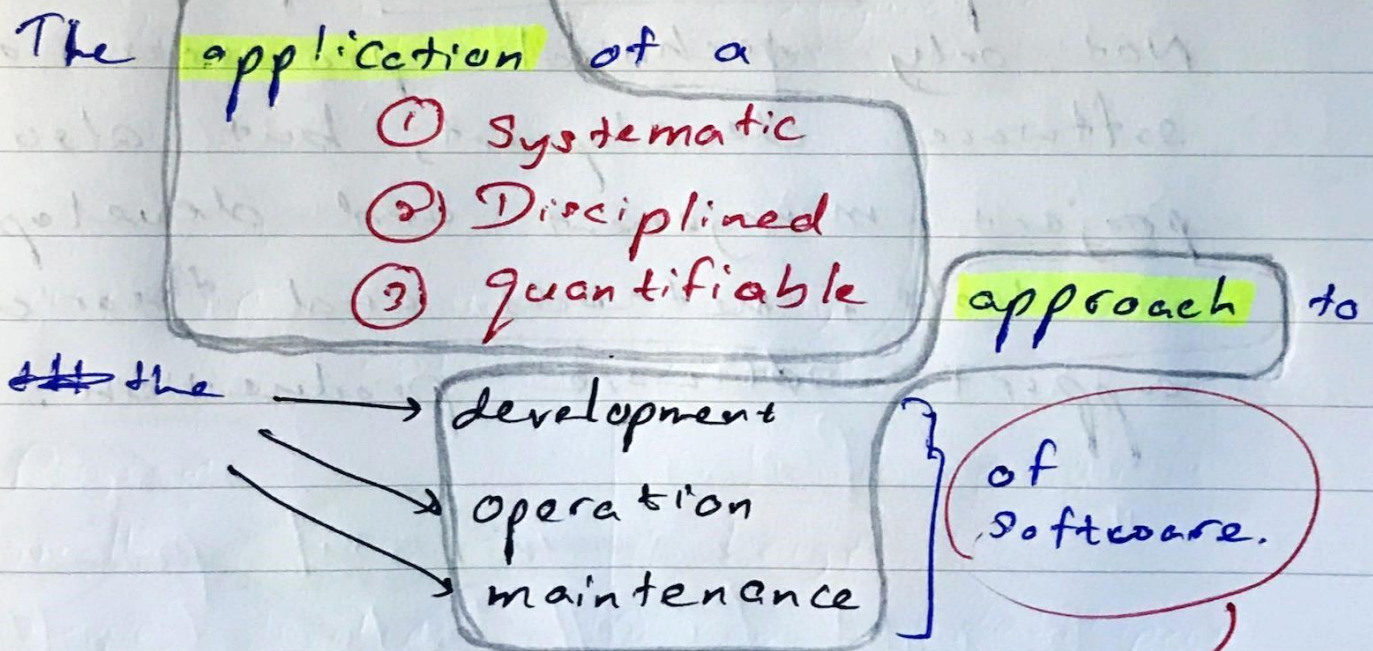 The application of a
① Systematic
② Disciplined
③ quantifiable approach to
the development
operation
maintenance
of
software.